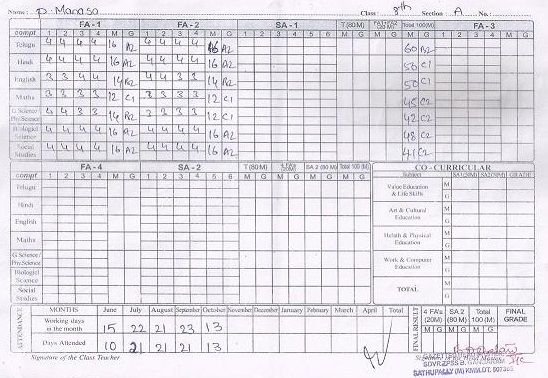 Name: P. Manasa Class: 8th Section: A
FA - 1 FA - 2 SA - 1 T (80 M) Total 100(M) FA - 3
compt 1 2 3 4 M G 1 2 3 4 M G 1 2 3 4 5 6 M G M G M G 1 2 3 4 M G
Telugu 4 4 4 4 16 A2 4 4 4 4 16 A2 60 B2
Hindi 4 4 4 4 16 A2 4 4 4 4 16 A2 56 C1
English 3 3 4 4 14 B2 4 4 3 3 14 B2 50 C1
Maths 3 3 3 3 12 C1 3 3 3 3 12 C1 45 C2
G.Science/ Phy.Science 4 4 3 3 14 B2 3 3 3 3 12 C1 42 C2
Biological Science 4 4 4 4 16 A2 4 4 4 4 16 A2 48 C2
Social Studies 4 4 4 4 16 A2 4 4 4 4 16 A2 41 C2
FA - 4 SA - 2 T (80 M) 4 FA's (20M) SA 2 (80 M) Total 100 (M) CO - CURRICULAR
compt 1 2 3 4 M G 1 2 3 4 5 6 M G M G M G M G Subject SA1(50M) SA2(50M) GRADE
Telugu
Hindi
English
Maths
G.Science/ Phy.Science
Biological Science
Social Studies
Value Education & Life Skills M G
Art & Cultural Education M G
Helath & Physical Education M G
Work & Computer Education M G
TOTAL M G
ATTENDANCE MONTHS June July August September October November December January February March April Total
Working days in the month 15 22 21 23 13
Days Attended 10 21 21 21 13
FINAL RESULT 4 FA's (20M) SA 2 (80 M) Total 100 (M) FINAL GRADE
M G M G M G
Signature of the Class Teacher Signature of the Head Master
GAZETTED
SATHUPALLY (M) KMM.DT. 507303